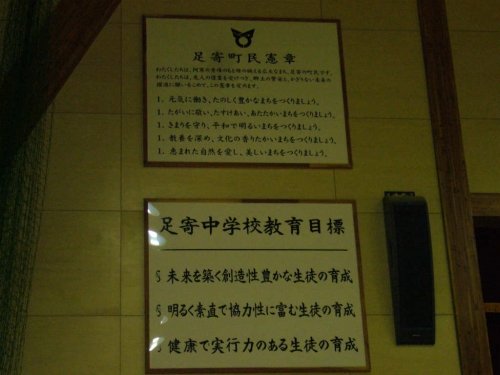 足寄町民憲章
1. 元気に働き、たのしく豊かなまちをつくりましょう。
1. たがいに敬い、たすけあい、あたたかいまちをつくりましょう。
1. きまりを守り、平和で明るいまちをつくりましょう。
1. 教養を深め、文化の香りたかいまちをつくりましょう。
1. 恵まれた自然を愛し、美しいまちをつくりましょう。
足寄中学校教育目標
§ 未来を築く創造性豊かな生徒の育成
§ 明るく素直で協力性に富む生徒の育成
§ 健康で実行力のある生徒の育成